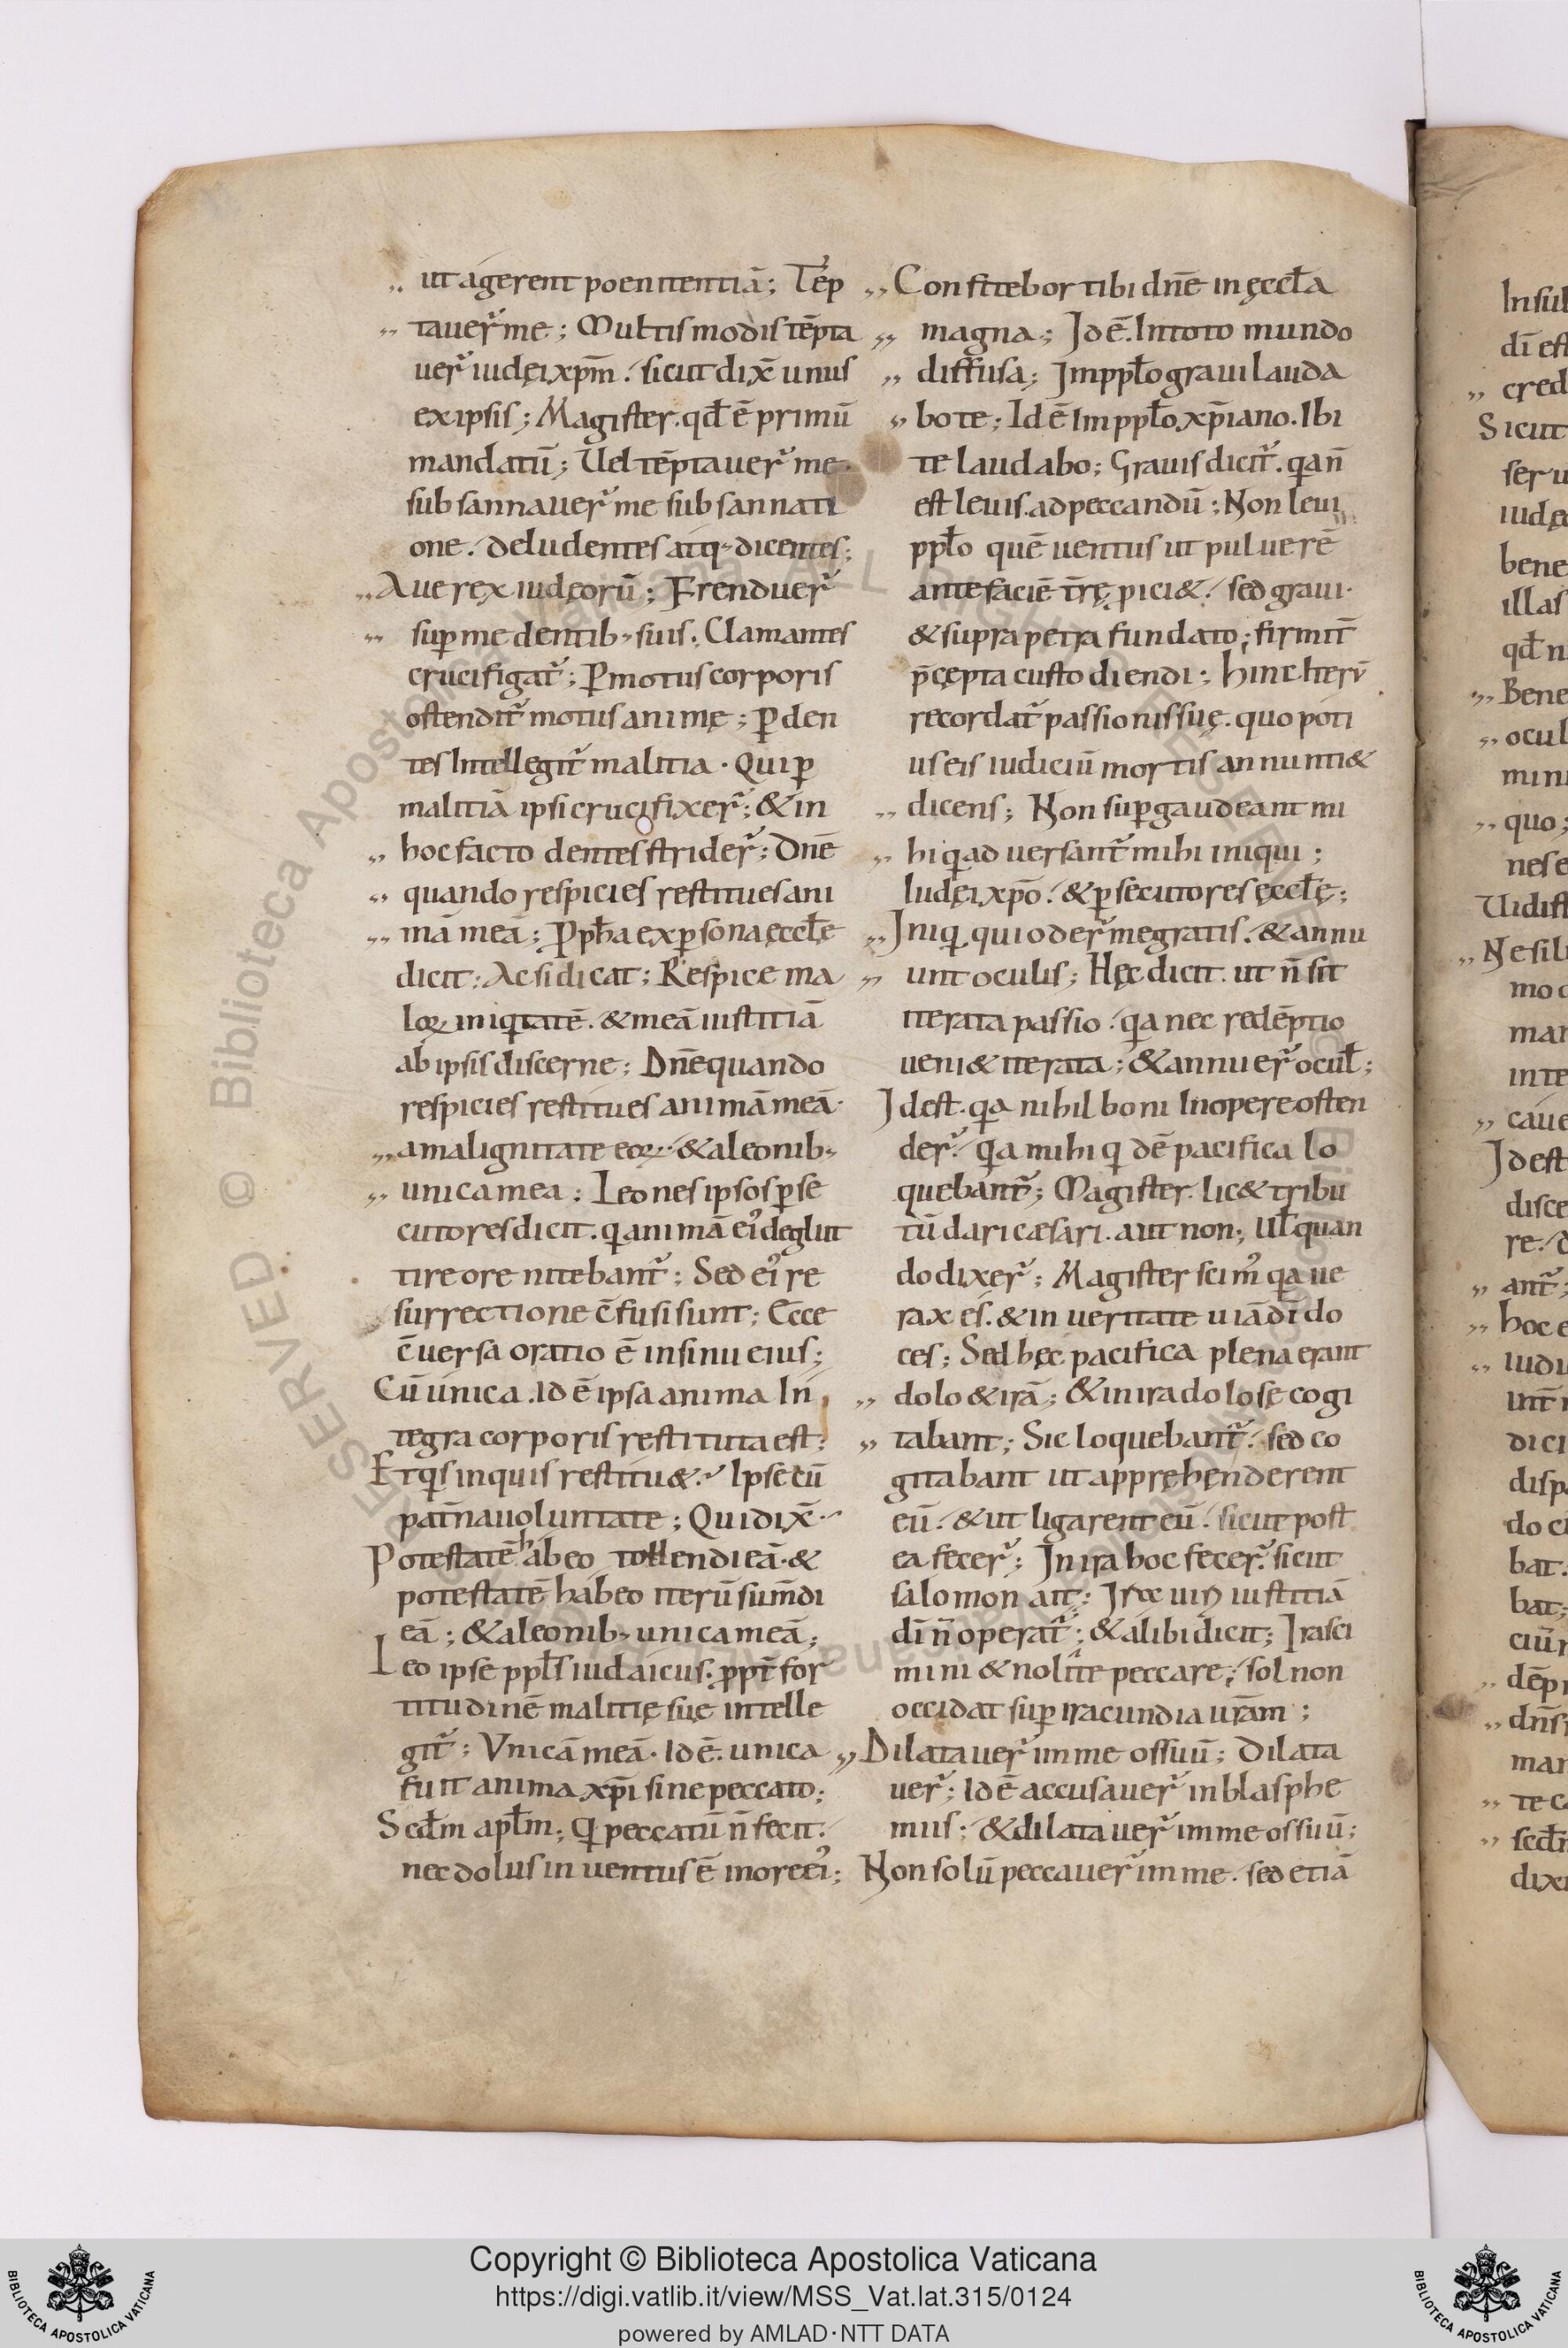 ut agerent poenitentiā; Tēp
tauer᷑ me; Multis modis tēpta
uer᷑ iudęi xp̄m. sicut dix̄ unus
ex ipsis; Magister. qđ ē primū
mandatū; Uel tēptauer᷑ me.
subsannauer᷑ me subsannati
one. deludentes atq; dicentes;
Aue rex iudęorū; Frenduer᷑
sup̱ me dentib; suis; Clamantes
crucifigat᷑; P̱ motus corporis
ostendit᷑ motus animę; P̱ den
tes Intellegit᷑ malitia. Qui p̱
malitiā ipsi crucifixer᷑; & in
hoc facto dentes strider᷑; Dn̄e
quando respicies restitues ani
mā meā; Pp̄ha ex p̱sona ęccłe
dicit; Ac si dicat; Respice ma
loꝝ iniq̇tatē. & meā iustitiā
ab ipsis discerne; Dn̄e quando
respicies restitues animā meā.
a malignitate eoꝝ. & a leonib;
unica mea; Leones ipsos p̱se
cutores dicit. q̇ animā ei᷒ deglut
tire ore nitebant᷑; Sed ei᷒ re
surrectione c̄fusi sunt; Ecce
c̄uersa oratio ē in sinu eius;
Cū unica. id ē ipsa anima In
tegra corporis restituta est;
Et q̇s inquis restitu&. Ipse cū
pat̄na uoluntate; Qui dix̄.
Potestatē habeo tollendi eā. &
potestatē habeo iterū sum̄di
eā; & a leonib; unica meā;
Leo ipse ppłs iudaicus. ppt̄ for
titudinē malitię suę intelle
git᷑; Vnicā meā. id ē. unica
fuit anima xp̄i sine peccato;
Scđm apłm; Q̇ peccatū n̄ fecit.
nec dolus inuentus ē in ore ei᷒;
Confitebor tibi dn̄e in ęccła
magna; Id ē. In toto mundo
diffusa; In ppło graui lauda
bo te; Id ē In ppło xp̄iano. Ibi
te laudabo; Grauis dicit᷑. q̇a n̄
est leuis ad peccandū; Non leui
ppło quē uentus ut puluerē
ante faciē t̄rę pici&. sed graui.
& supra petra fundato; firmit̄
p̄cepta custodiendi; hinc Iterū
recordat᷑ passionis suę. quo poti
us eis iudiciū mortis annunti&
dicens; Non sup̱gaudeant mi
hi q̇ aduersant᷑ mihi iniqui;
Iudęi xp̄o. & p̱secutores ęccłę;
Iniq̇ qui oder᷑ me gratis. & annu
unt oculis; Hęc dicit. ut n̄ sit
iterata passio. q̇a nec redēptio
ueni& iterata; & annuer᷑ ocuł;
Id est. q̇a nihil boni In opere osten
der᷑. q̇a mihi q̇dē pacifica lo
quebant᷑; Magister. lic& tribu
tū dari cæsari. aut non; Uł quan
do dixer᷑; Magister scim᷒ q̇a ue
rax es. & in ueritate uiā dī do
ces; Sed hęc pacifica plena erant
dolo & irā; & in ira dolose cogi
tabant; Sic loquebant᷑. sed co
gitabant ut apprehenderent
eū. & ut ligarent eū. sicut post
ea fecer᷑; In ira hoc fecer᷑. sicut
salomon ait; Iræ uiri iustitiā
dī n̄ operat᷑; & alibi dicit; Irasci
mini & nolite peccare; sol non
occidat sup̱ iracundia ur̄am;
Dilatauer᷑ in me os suū; Dilata
uer᷑; Id ē accusauer᷑ in blasphe
miis; & dilatauer᷑ in me os suū;
Non solū peccauer᷑ in me. sed etiā
Copyright © Biblioteca Apostolica Vaticana
https://digi.vatlib.it/view/MSS_Vat.lat.315/0124
powered by AMLAD·NTT DATA
BIBLIOTECA APOSTOLICA VATICANA
BIBLIOTECA APOSTOLICA VATICANA